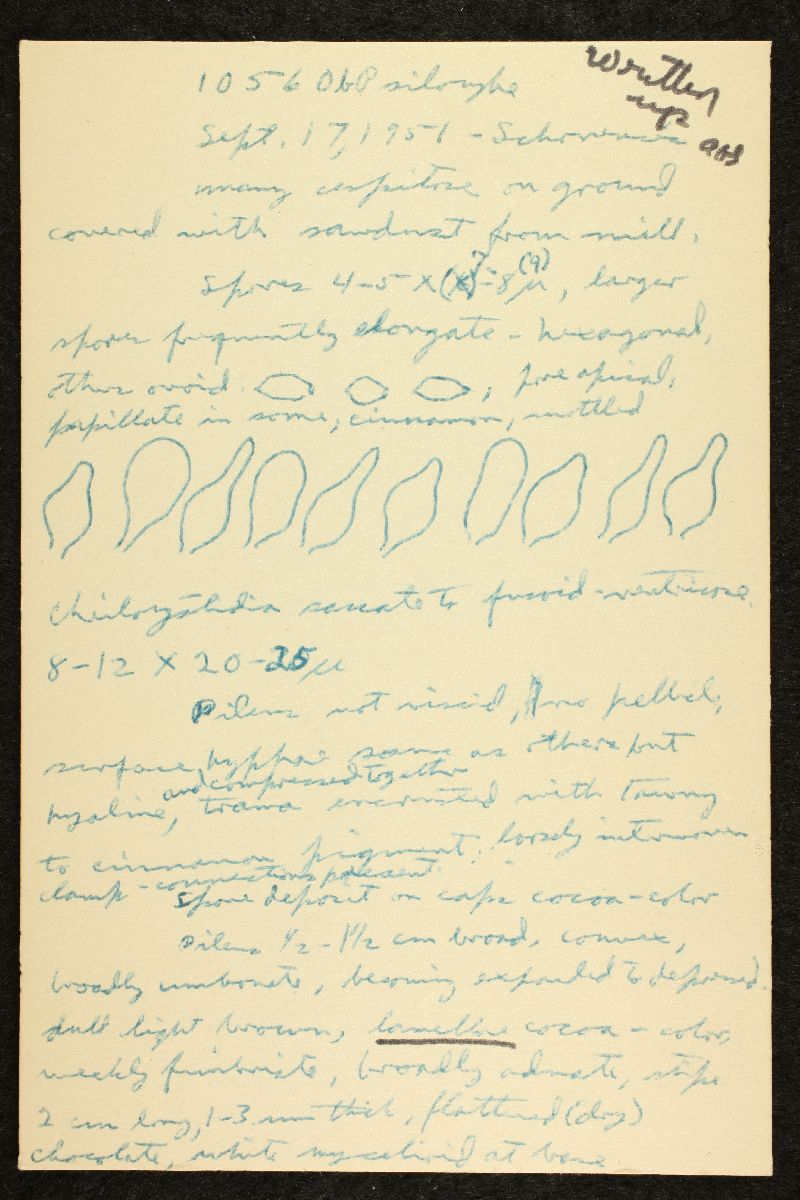 Written
up
1056 Ob Psilocybe
Sept. 17, 1951 -
many cespitose on ground
covered with sawdust from mill.
Spores 4-5 x (6) 7-8 (9) µ, larger
spores frequently elongate-hexagonal,
others ovoid ; pore apical;
papillate in some; cinnamon, mottled
Cheilocystidia saccate to fusoid-ventricose
8-12 x 20-25 µ
Pileus not viscid, no pellicle,
surface hyphae same as others but
and compressed together
hyaline, trama encrusted with tawny
to cinnamon pigment. loosely interwoven
clamp-connections present.
Spore deposit on caps cocoa-color
Pileus ½-1½ cm broad, convex,
broadly umbonate, becoming expanded to depressed.
dull light brown, lamellae cocoa-color,
weakly fimbriate, broadly adnate, stipe
2 cm long, 1-3 mm thick, flattened (dry)
chocolate, white mycelioid at base